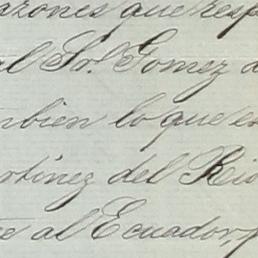 azones que resp
al Sr. Gomez d
mbien lo que es
artinez del Rio
te al Ecuador, p